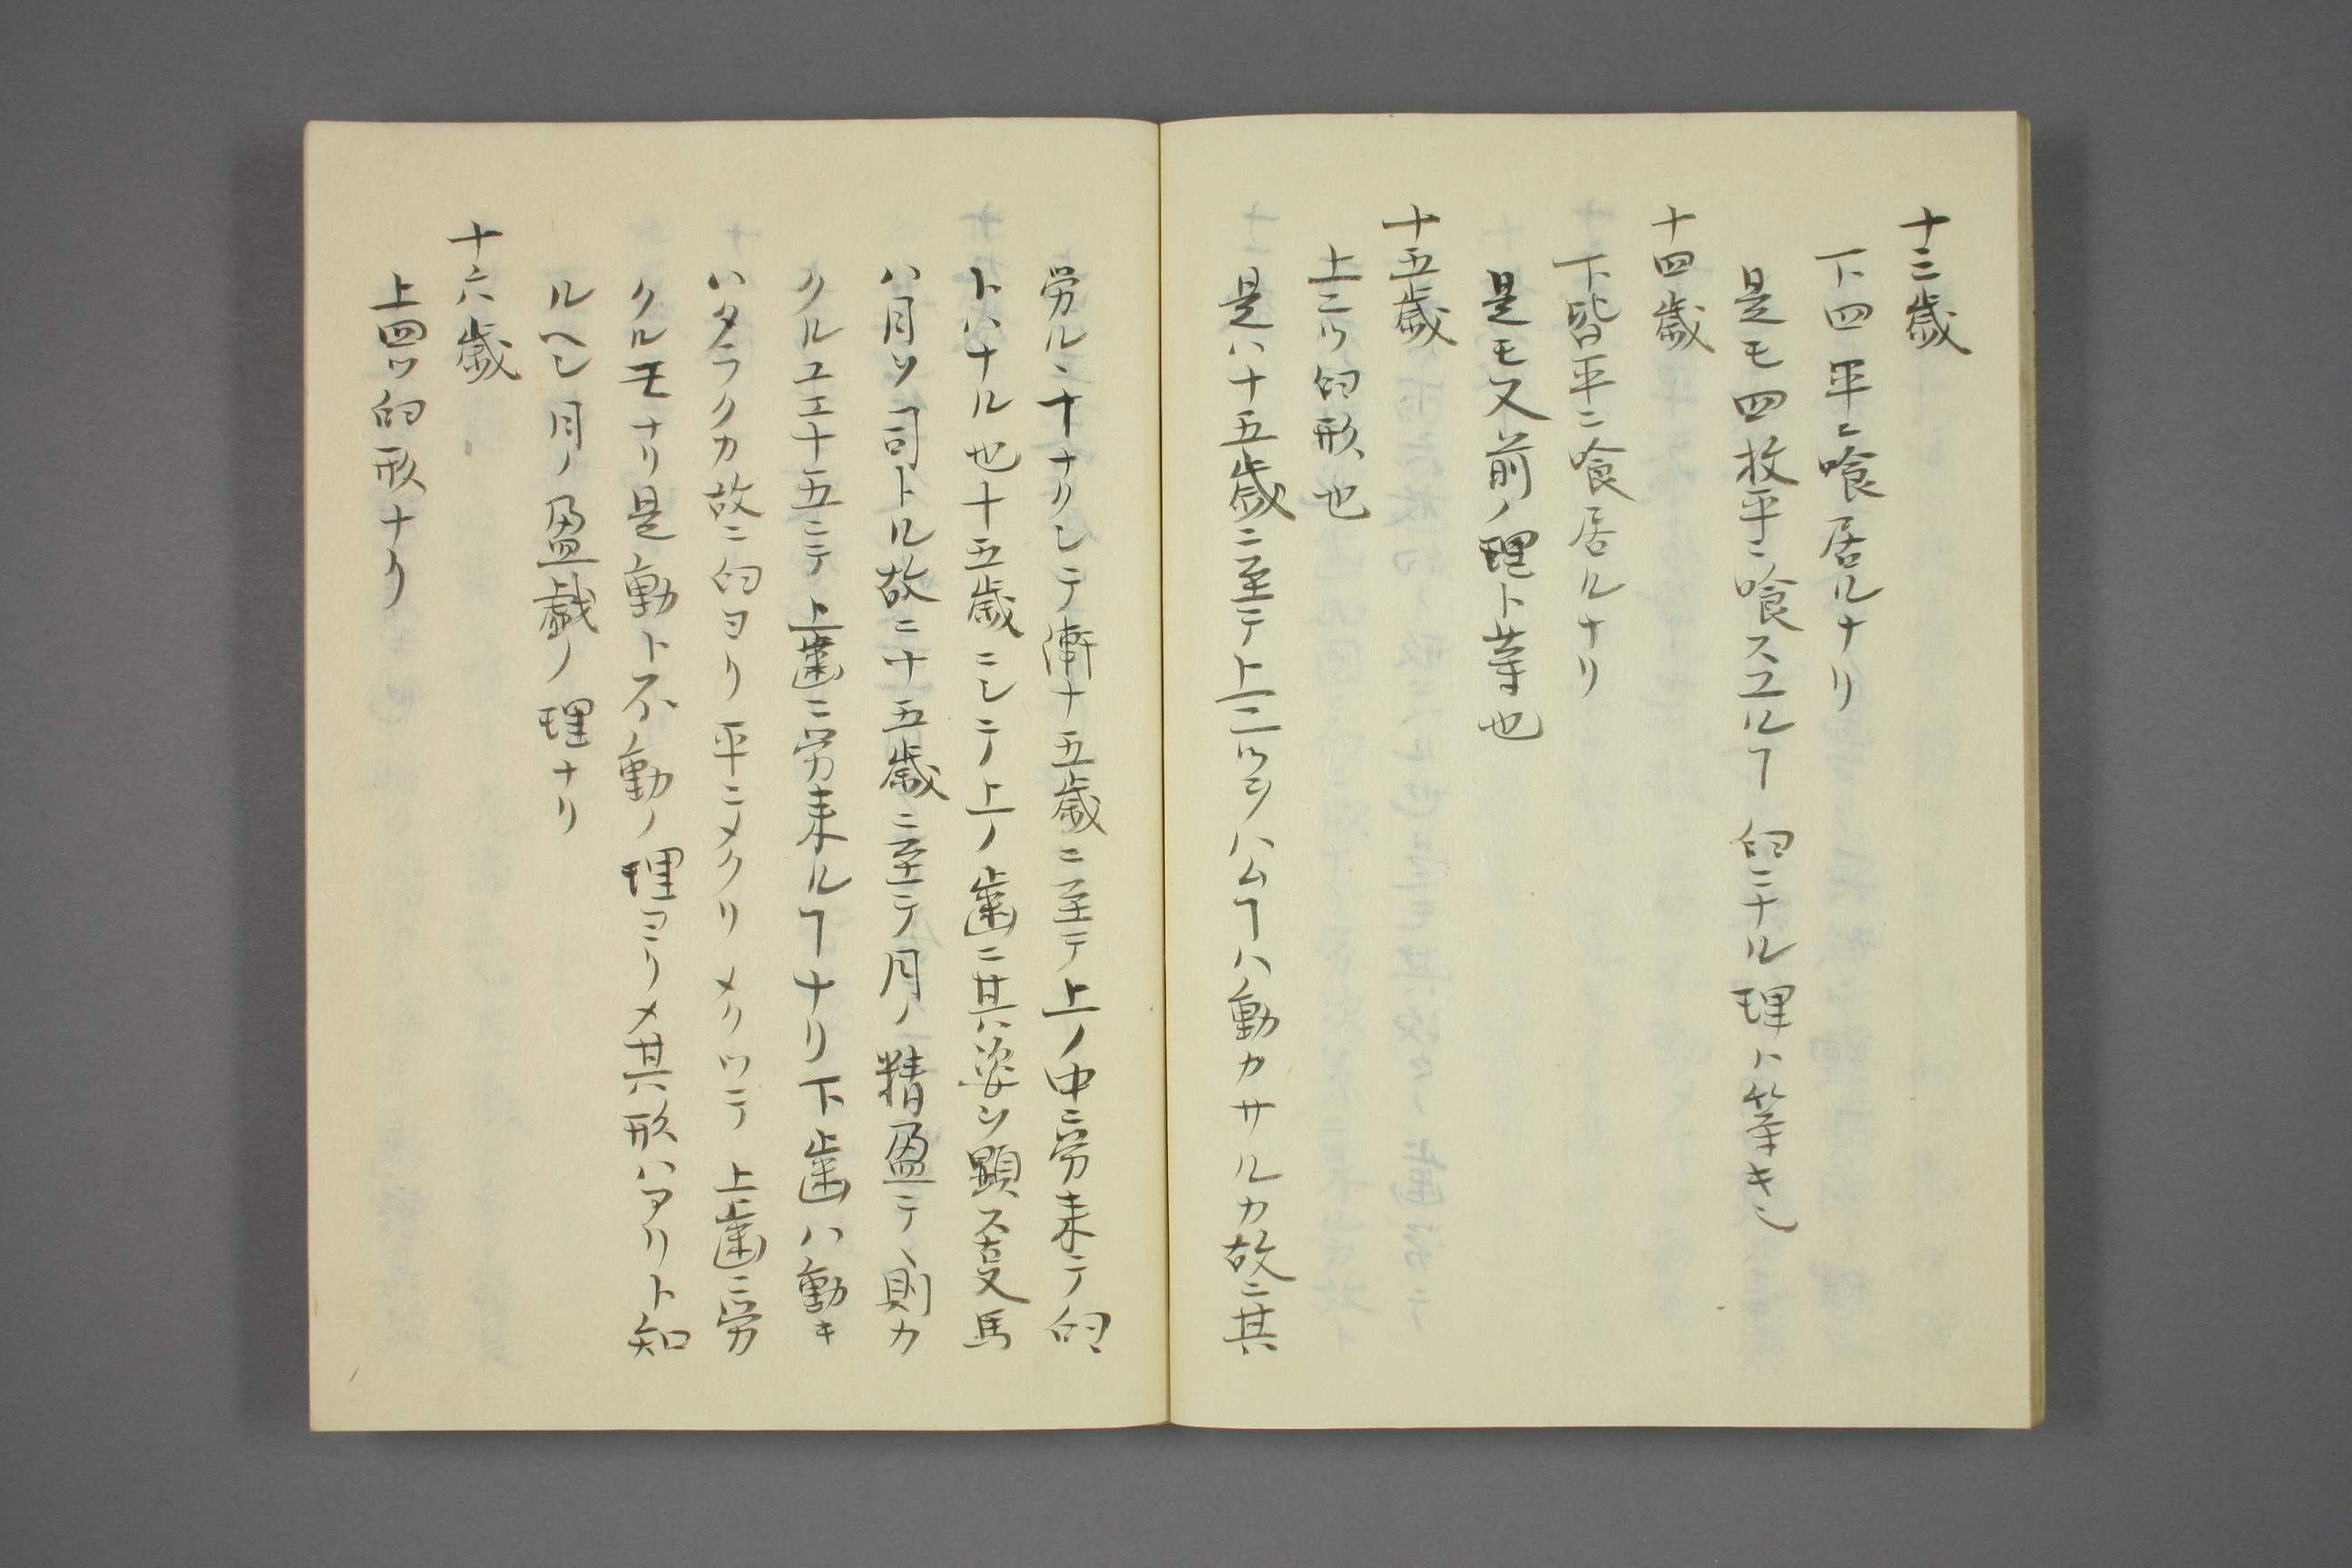 十三歳
下四平ニ喰居ルナリ
是モ四枚平ニ喰スユルヿ臼ニナル理ハ等キシ
十四歳
下皆平ニ喰居ルナリ
是モ又前ノ理ト等也
十五歳
上二ツ臼形也
是ハ十五歳ニ至テ上二ツヲハムヿハ動カサルカ故ニ其
労ルニナクシテ漸十五歳ニ至テ上ノ中ニ労来テ臼
トハナル也十五歳ニシテ上ノ歯ニ其姿ヲ顕ス夫馬
ハ月ヲ司トル故ニ十五歳ニ至テ月ノ精盈テ則カ
クルユエ十五ニテ上歯ニ労来ルヿナリ下歯ハ動キ
ハタラクカ故ニ臼ヨリ平ニメクリメクツテ上歯ニ労
クルモナリ是動ト不動ノ理ヨリメ其形ハアリト知
ルヘシ月ノ盈戯ノ理ナリ
十六歳
上四ツ臼形ナリ